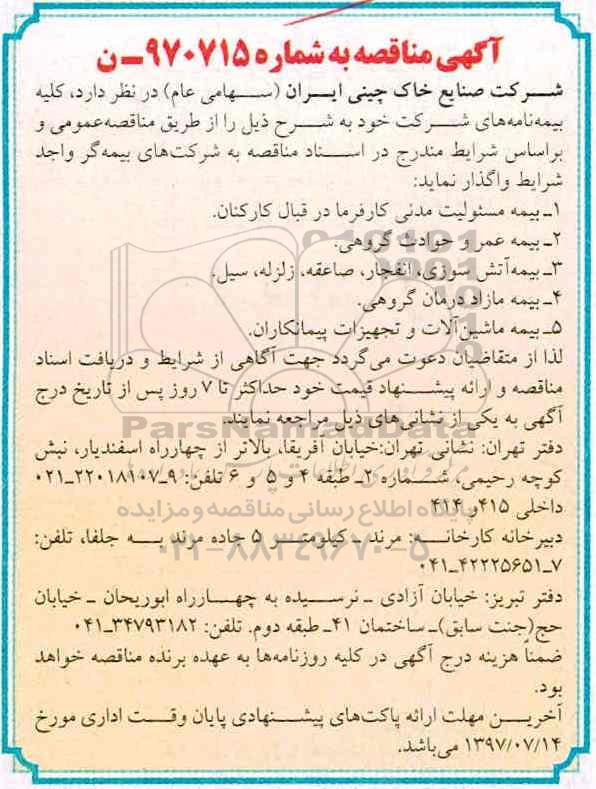 آگهی مناقصه به شماره ۹۷۰۷۱۵ـ ن
شرکت صنایع خاک چینی ایران (سهامی عام) در نظر دارد، کلیه
بیمه‌نامه‌های شرکت خود به شرح ذیل را از طریق مناقصه‌عمومی و
براساس شرایط مندرج در اسناد مناقصه به شرکت‌های بیمه‌گر واجد
شرایط واگذار نماید:
۱ـ بیمه مسئولیت مدنی کارفرما در قبال کارکنان.
۲ـ بیمه عمر و حوادث گروهی.
۳ـ بیمه‌آتش سوزی، انفجار، صاعقه، زلزله، سیل.
۴ـ بیمه مازاد درمان گروهی.
۵ـ بیمه ماشین‌آلات و تجهیزات پیمانکاران.
لذا از متقاضیان دعوت می‌گردد جهت آگاهی از شرایط و دریافت اسناد
مناقصه و ارائه پیشنهاد قیمت خود حداکثر تا ۷ روز پس از تاریخ درج
آگهی به یکی از نشانی‌های ذیل مراجعه نمایند.
ParsNamadData
دفتر تهران: نشانی تهران:خیابان آفریقا، بالاتر از چهارراه اسفندیار، نبش
کوچه رحیمی، شماره ۲ـ طبقه ۴ و ۵ و ۶ تلفن: ۹ـ۲۲۰۱۸۱۰۷ـ۰۲۱
داخلی ۴۱۵و ۴۱۴
پایگاه اطلاع رسانی مناقصه و مزایده
دبیرخانه کارخانه: مرند ـ کیلومتر ۵ جاده مرند به جلفا، تلفن:
۰۲۱-۸۸۳۴۹۶۷۰-۵
۷ـ۴۲۲۲۵۶۵۱ـ۰۴۱
دفتر تبریز: خیابان آزادی ـ نرسیده به چهارراه ابوریحان ـ خیابان
حج(جنت سابق)ـ ساختمان ۴۱ـ طبقه دوم. تلفن: ۳۴۷۹۳۱۸۲ـ۰۴۱
ضمناً هزینه درج آگهی در کلیه روزنامه‌ها به عهده برنده مناقصه خواهد
بود.
آخرین مهلت ارائه پاکت‌های پیشنهادی پایان وقت اداری مورخ
۱۳۹۷/۰۷/۱۴ می‌باشد.